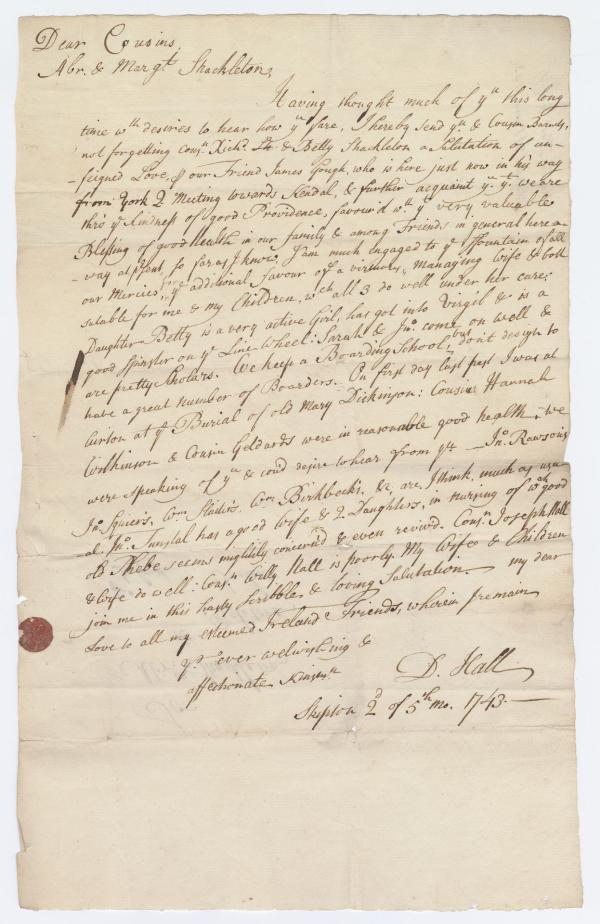 Dear Cousins,
Abr. & Margt. Shackleton,
Having thought much of yu this long
time wth desires to hear how yu fare, I hereby send yu & Cousin Barnits,
not forgetting Cousn. Richd. & Betty Shackleton a Salutation of un-
-feigned Love, our Friend James Gough, who is here just now in his way
from York Q Meeting towards Kendal, & further acquaint yu. yt. we are
thro' ye. kindness of good Providence, favour'd wth. ye very valuable
Blessing of good health in our family & among Friends in general here a-
-way at psent, so far as I know. I am much engaged to ye fountain of all
our Mercies, for ye additional favour of a virtuous, managing Wife & both
sutable for me & my Children, wch all 3 do well under her care:
Daughter Betty is a very active Girl, has got into Virgil & is a
good Spinster on ye Line Wheel: Sarah & Jno. come on well &
are pretty Scholars. We keep a Boarding School, but don't design to
have a great number of Boarders. On first day last past I was at
Airton at ye Burial of old Mary Dickinson: Cousins Hannah
Wilkinson & Cousin Geldards were in reasonable good health, we
were speaking of yu & cou'd desire to hear from yu. Jno. Rawsons
Jno. Spicers, Wm. Slaters. Wm. Birkbecks, &c, are, I think, much as usu-
al. Jno. Tunstal has a good Wife & 2 Daughters, in nursing of wch good
old Phebe seems mightily concern'd & even reviv'd. Cousn. Joseph Hall
& Wife do well: Cousn. Willy Hall is poorly. My Wife & Children
join me in this hasty Scribble & loving Salutation. my dear
Love to all my esteemed Ireland Friends, wherein I remain
yr. ever welwishing &
affectionate Kinsmn.
D. Hall
Skipton 2d of 5th mo. 1743.